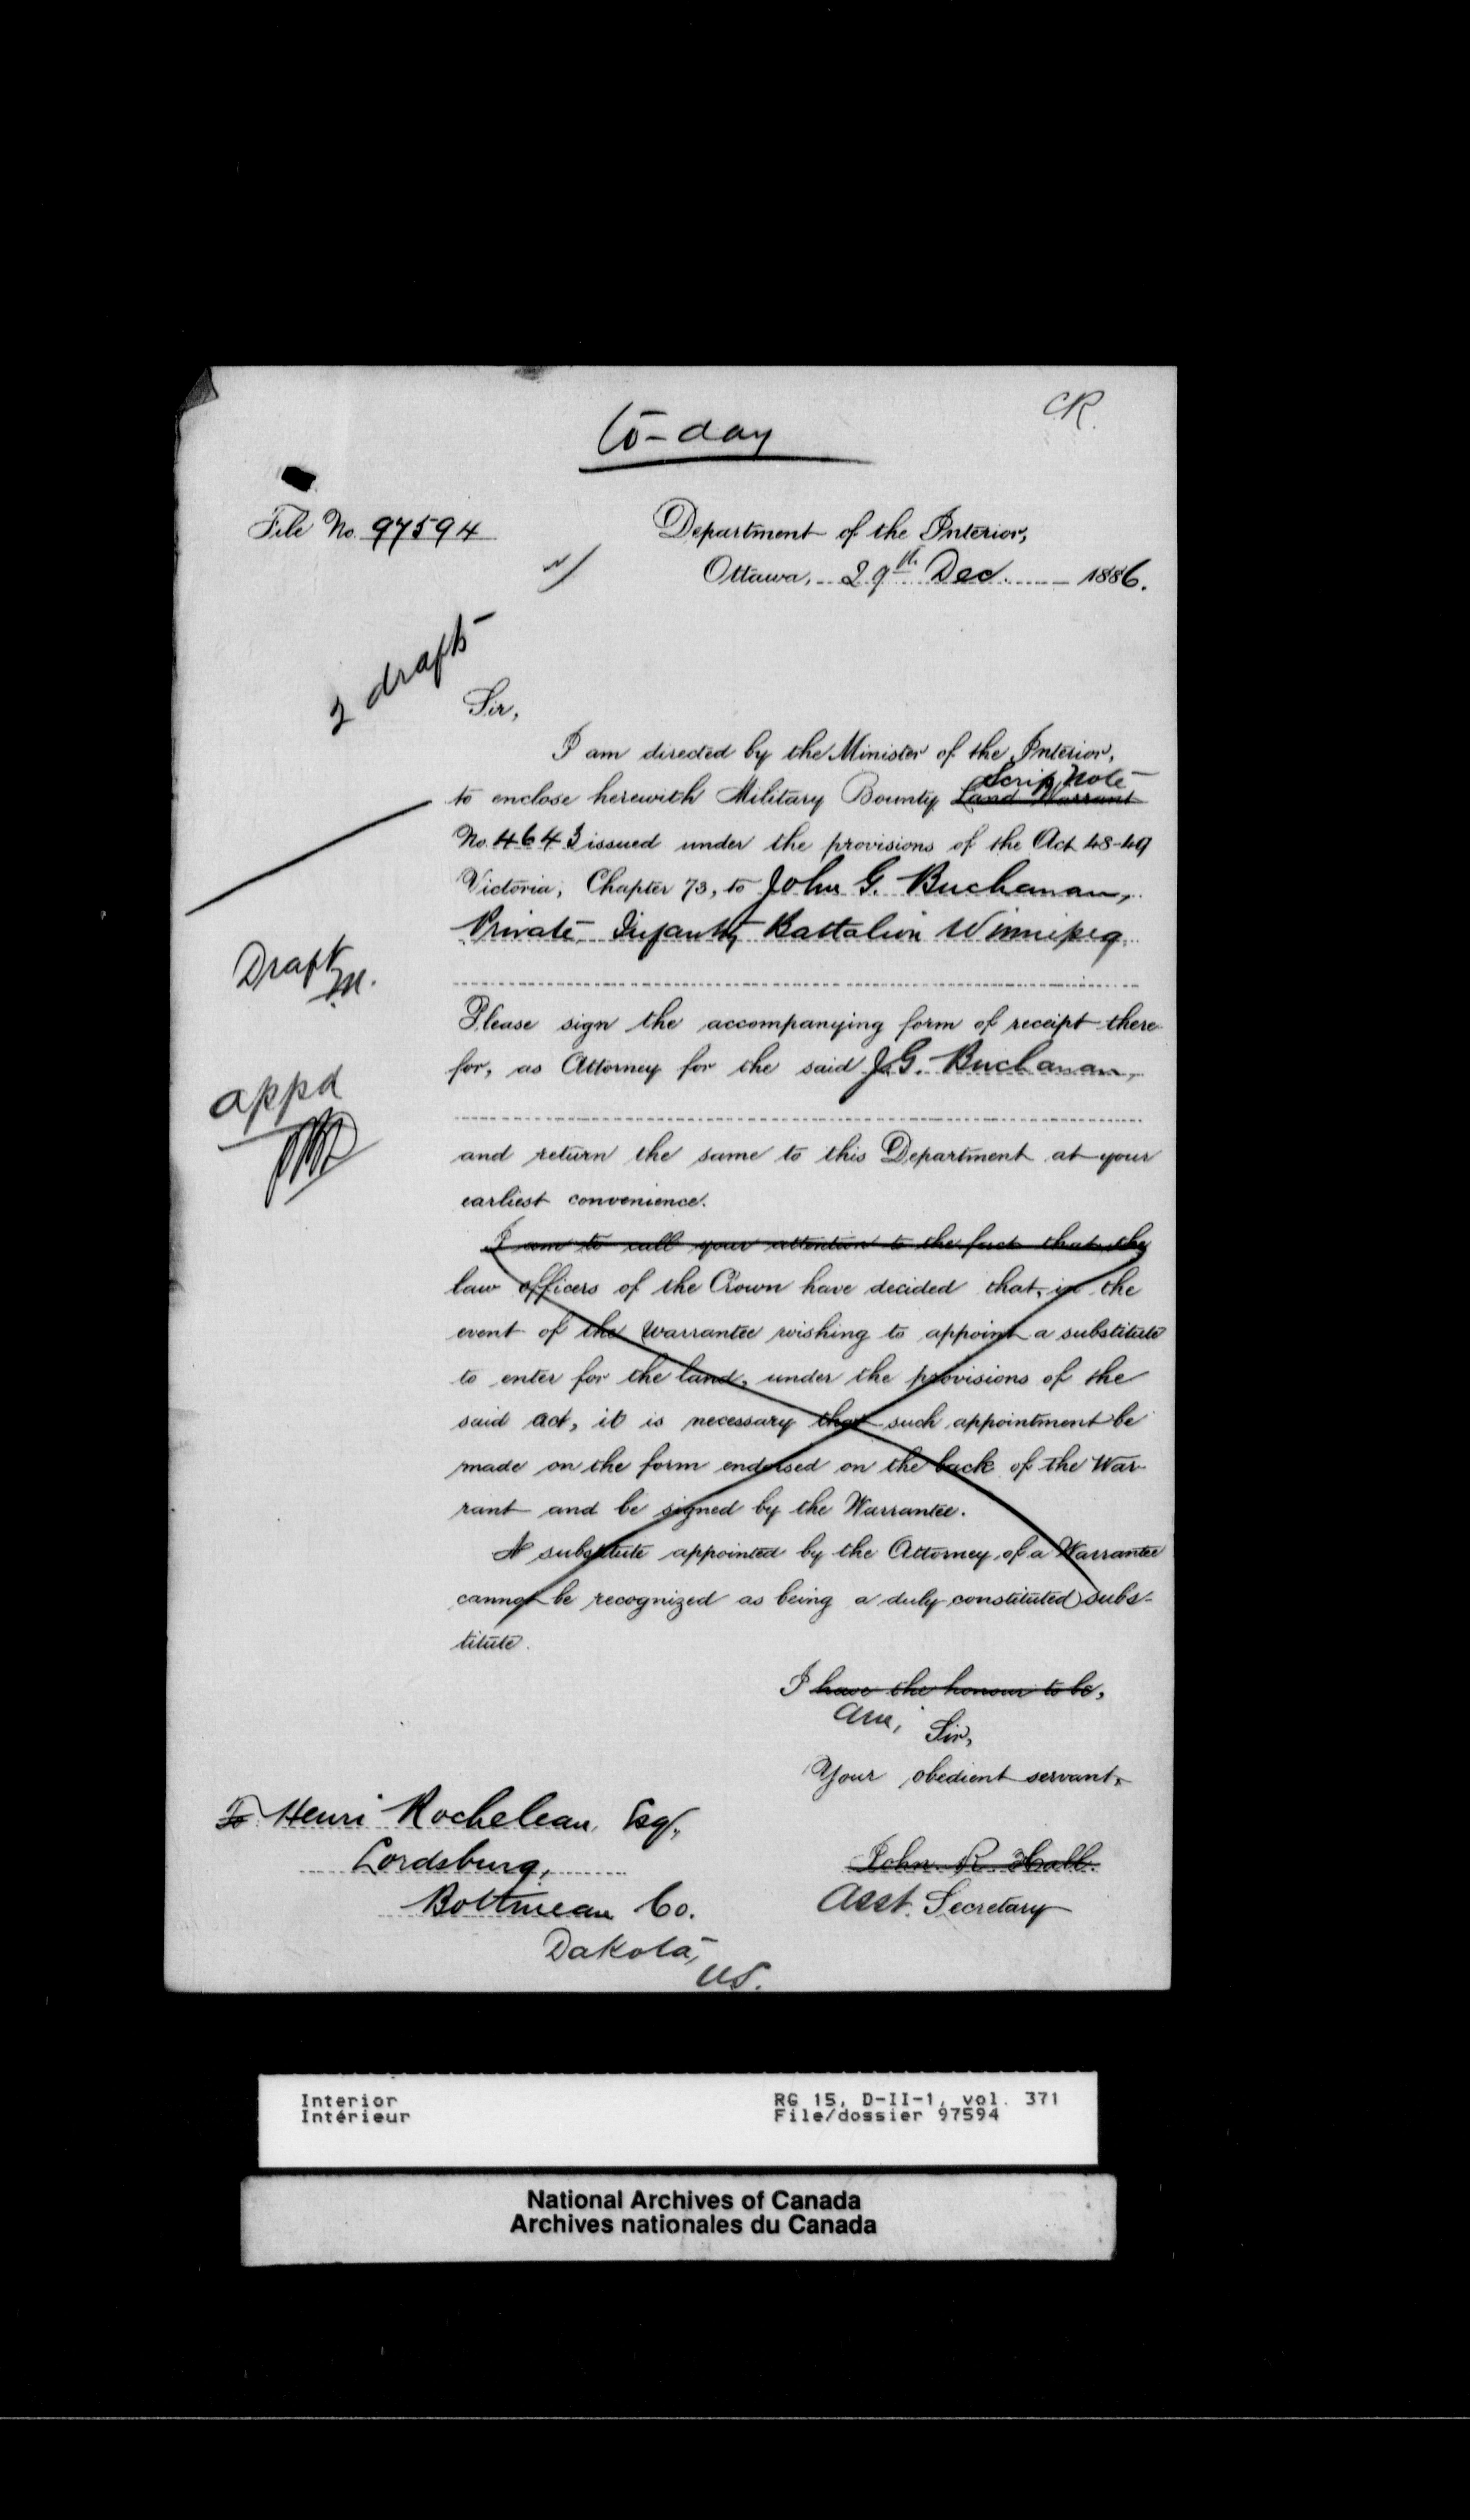 CR.
to-day
File No. 97594
Department of the Interior,
Ottawa, 29th Dec. 1886.
2 drafts
Sir,
I am directed by the Minister of the Interior,
Scrip Note
to enclose herewith Military Bounty Land Warrant
No. 4643 issued under the provisions of the Act 48-49
Victoria, Chapter 73, to John G. Buchanan,
Private Infantry Battalion Winnipeg.
Draft
M.
Please sign the accompanying form of receipt there-
for, as Attorney for the said J.G. Buchanan,
appd
and return the same to this Department at your
earliest convenience.
I am to call your attention to the fact that the
law officers of the Crown have decided that, in the
event of the Warrantee wishing to appoint a substitute
to enter for the land, under the provisions of the
said Act, it is necessary that such appointment be
made on the form endorsed on the back of the War-
rant and be signed by the Warrantee.
A substitute appointed by the Attorney of a Warrantee
cannot be recognized as being a duly constituted subs-
titute.
I have the honour to be,
am,
Sir,
Your obedient servant,
To Henri Rocheleau, Esq.,
Lordsburg,
John R Hall.
Bottineau Co.
Asst. Secretary
Dakota,
US.
Interior
Intérieur
RG 15, D-II-1, vol. 371
File/dossier 97594
National Archives of Canada
Archives nationales du Canada